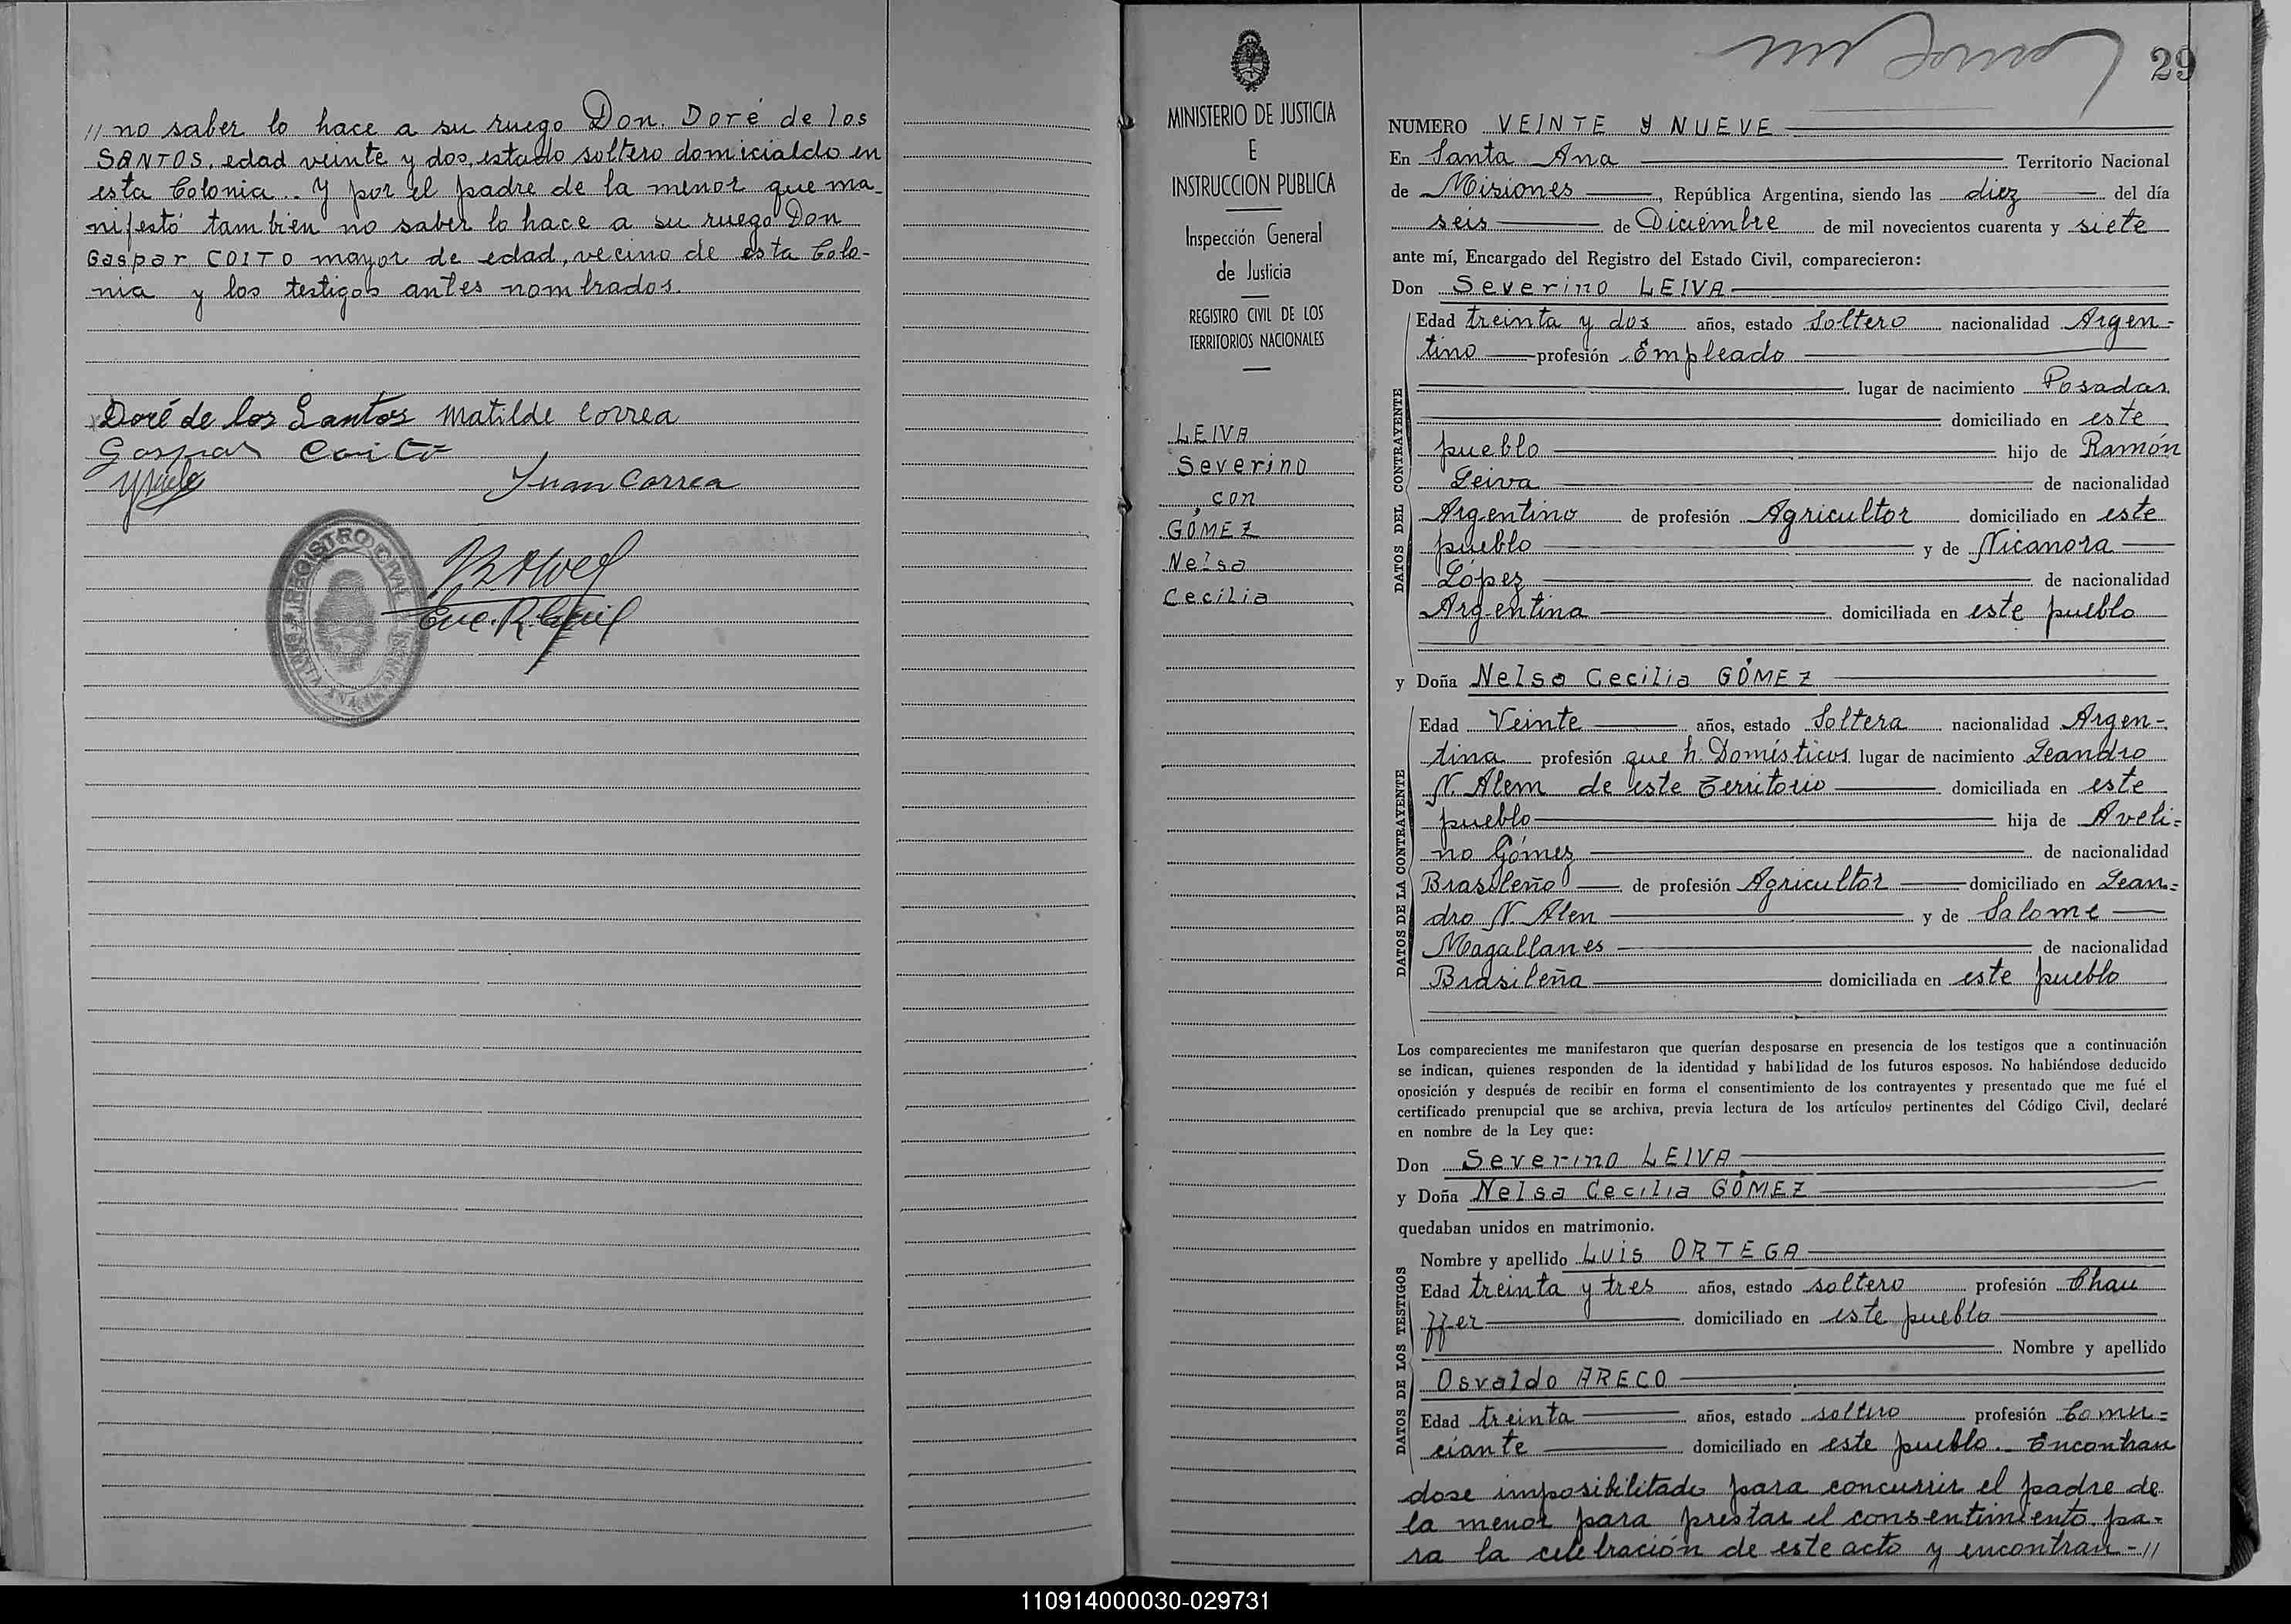 // no saber lo hace a su ruego Don. Doré de los
SANTOS. edad veinte y dos, estado soltero domicialdo en
esta Colonia.. Y por el padre de la menor que ma-
nifestó tambien no saber lo hace a su ruego Don
Gaspar COITO mayor de edad, vecino de esta Colo-
nia y los testigos antes nombrados.
Doré de los Santos Matilde Correa
Gaspar Coito
Juan Correa
REGISTRO CIVIL
29
MINISTERIO DE JUSTICIA
E
INSTRUCCION PUBLICA
Inspección General
de Justicia
REGISTRO CIVIL DE LOS
TERRITORIOS NACIONALES
LEIVA
Severino
con
GÓMEZ
Nelsa
Cecilia
NUMERO VEINTE Y NUEVE
En Santa Ana Territorio Nacional
de Misiones, República Argentina, siendo las diez del día
seis de Diciembre de mil novecientos cuarenta y siete
ante mí, Encargado del Registro del Estado Civil, comparecieron:
Don Severino LEIVA
DATOS DEL CONTRAYENTE
Edad treinta y dos años, estado Soltero nacionalidad Argen-
tino profesión Empleado
lugar de nacimiento Posadas
domiciliado en este
pueblo hijo de Ramón
Leiva de nacionalidad
Argentino de profesión Agricultor domiciliado en este
pueblo y de Nicanora
López de nacionalidad
Argentina domiciliada en este pueblo
y Doña Nelsa Cecilia GÓMEZ
DATOS DE LA CONTRAYENTE
Edad Veinte años, estado Soltera nacionalidad Argen-
tina profesión que h. Domésticos lugar de nacimiento Leandro
N. Alem de este Territorio domiciliada en este
pueblo hija de Aveli=
no Gómez de nacionalidad
Brasileño de profesión Agricultor domiciliado en Lean=
dro N. Alen y de Salome
Magallanes de nacionalidad
Brasileña domiciliada en este pueblo
Los comparecientes me manifestaron que querían desposarse en presencia de los testigos que a continuación
se indican, quienes responden de la identidad y habilidad de los futuros esposos. No habiéndose deducido
oposición y después de recibir en forma el consentimiento de los contrayentes y presentado que me fué el
certificado prenupcial que se archiva, previa lectura de los artículos pertinentes del Código Civil, declaré
en nombre de la Ley que:
Don Severino LEIVA
y Doña Nelsa Cecilia GÓMEZ
quedaban unidos en matrimonio.
DATOS DE LOS TESTIGOS
Nombre y apellido Luis ORTEGA
Edad treinta y tres años, estado soltero profesión Chau
ffer domiciliado en este pueblo
Nombre y apellido
Osvaldo ARECO
Edad treinta años, estado soltero profesión Comer=
ciante domiciliado en este pueblo.- Encontran
dose imposibilitado para concurrir el padre de
la menor para prestar el consentimiento pa-
ra la celebración de este acto y encontran-//
110914000030-029731